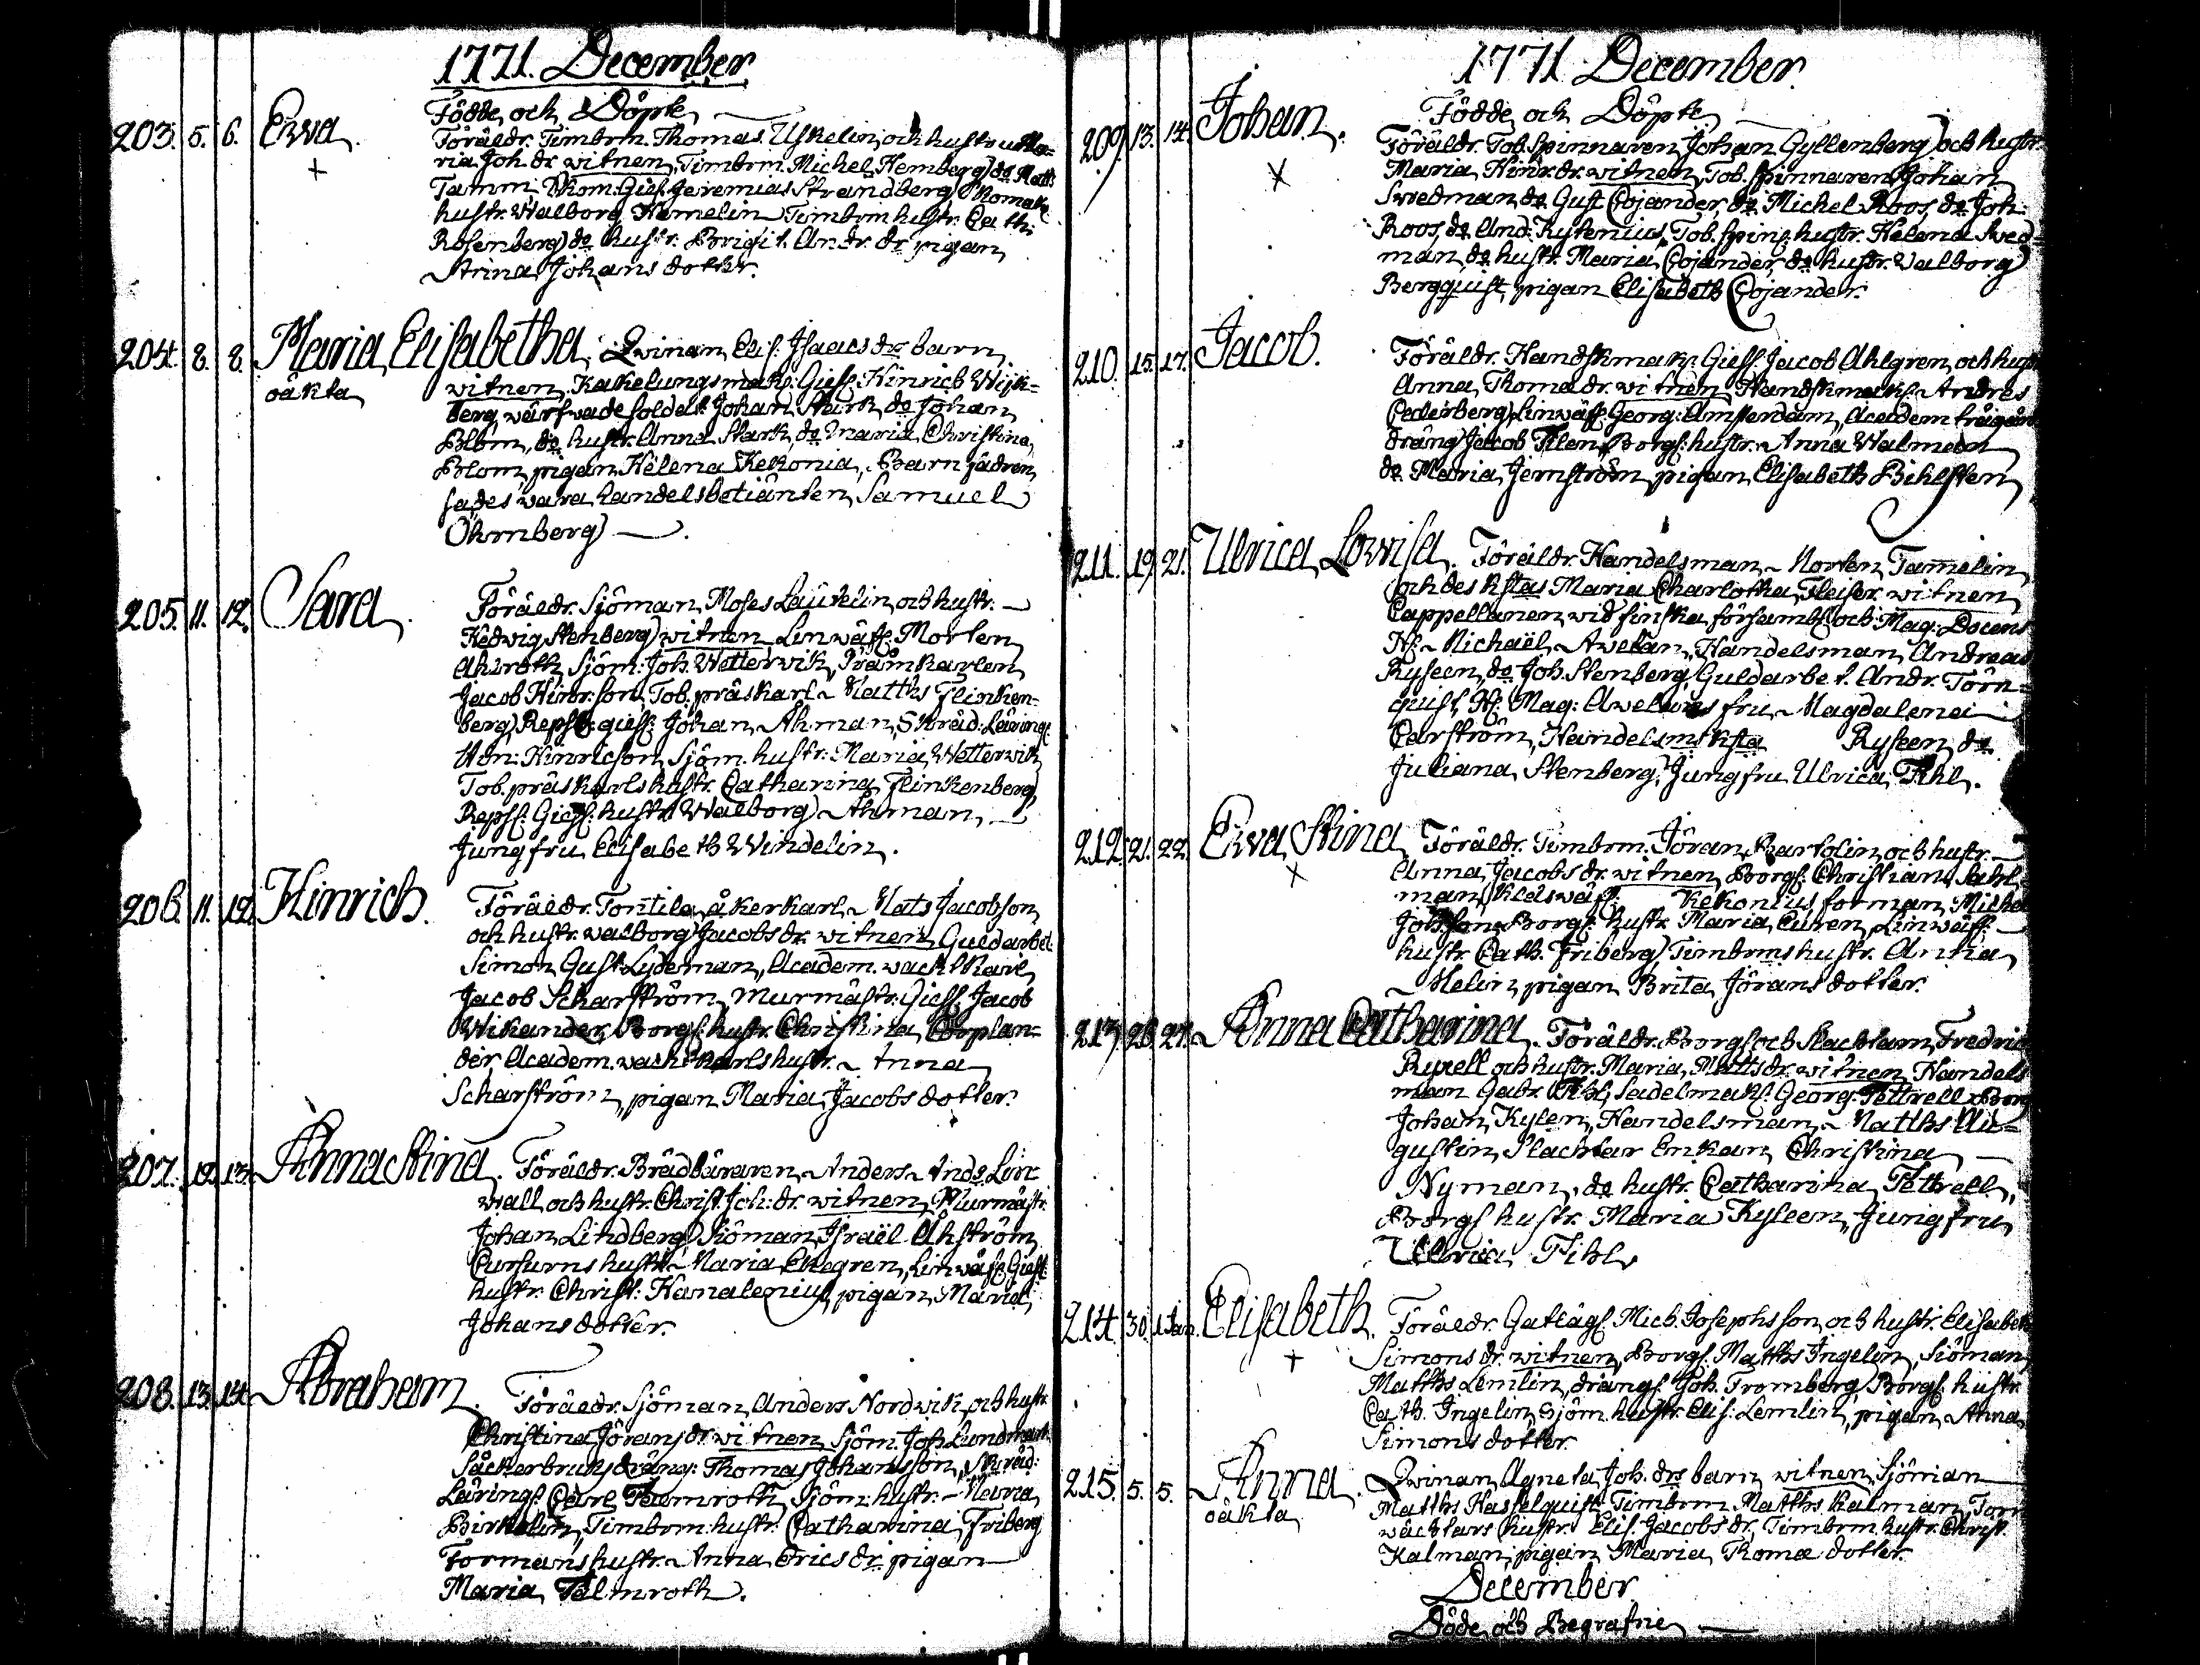 1771. December
Födde och Döpte
203. 5. 6. Ewa. Föräldr. Timbrm. Thomas Uskelin och hustru Ma=
ria Joh. dr. witnen, Timbrm. Michel Hemberg, do Matts
Tamm, Skom. Gies. Jeremias Strandberg, Skomak.
hustr. Walborg Hemelin Timbrm hustr. Cath:
Rosenberg, do hustr. Brigit. Andr. dr. pigan
Stina Johans dotter.
204. 8. 8. Maria Elisabetha. Qwinan Elis. Isaacs drs barn.
oäkta witnen, Kakelungsmak: Giess. Hinrich Wijk=
berg, wärfwade soldat. Johan Stark do Johan
Blom, do hustr. Anna Stark, do Maria Christina
Blom, pigan Helena Kekonia, Barn fadren
sades wara handelsbetiänten Samuel
Öhrnberg.
205. 11. 12. Sara. Föräldr. Sjöman Moses Laurelin och hustr.
Hedwig Stenberg, witnen Linwäff. Morten
Ahlroth, Sjöm: Joh. Wetterwik, Pråmkarlen
Jacob Hinr. son, Tob. präskarl Matths Flinken=
berg, Repsl: giess: Johan Ahman, Skräd: Lärings
Hen: Hinricson, Sjöm. hustr: Maria Wetterwik
Tob. präskarls hustr. Catharina Flinkenberg,
Repsl: Giess: hustr. Walborg Ahman,
Jungfru Elisabeth Windelin.
206. 11. 12. Hinrich. Föräldr. Tontila åkerkarl Mats Jacobson
och hustr. Walborg Jacobs dr. witnen Guldarbet:
Simon Gust. Lydeman, Academ. wacht Karl
Jacob Scharström, Murmästr. Giess. Jacob
Wikander, Borgs. hustr. Christina Coplan=
der, Academ. wacht Karls hustr. Anna
Scharström, pigan Maria Jacobs dotter.
207. 12. 13. Anna Stina. Föräldr. Brädbäraren Anders Ands. Lin
wall och hustr. Christ. Joh: dr. witnen, Murmästr.
Johan Lindberg, Siöman Israël Ahström,
Cursurns hustr. Maria Ekegren, Linwäff. Giess:
hustr. Christ: Hanalenius, pigan Maria
Johans dotter.
208. 13. 14. Abraham. Föräldr. Sjöman Anders Nordwik och hustr.
Christina Jörans dr. witnen Sjöm. Joh. Lundmark
Såckerbruks dräng: Thomas Johansson, Skräd:
Lärings. Carl Thamroth Sjöm: hustr. Maria
Birkelin, Timbrm: hustr. Catharina Friberg
Formans hustr. Anna Erics dr. pigan
Maria Palmroth.
1771 December.
Födde och Döpte
209. 13. 14. Johan. Föräldr. Tob. Spinnaren Johan Gyllenberg och hustr.
Maria Hinr. dr. witnen, Tob. Spinnaren Johan
Swedman do Gust. Cojander, do Michel Roos, do Joh:
Roos, do And: Rytenius, Tob. Spins. hustr. Helena Swed=
man, do hustr. Maria Cojander, do hustr. Walborg
Bergquist, pigan Elisabeth Cojander.
210. 15. 17. Jacob. Föräldr. Handskmak: Giess. Jacob Ahlgren, och hustr
Anna Thoma dr. witnen Handskmaks. Andres
Cederberg, Linwäff. Georg: Amsterdam, Academ trägårds
dräng Jacob Filen, Borgs: hustr. Anna Walmeen
do Maria Jernström, pigan Elisabeth Pihlsten
211. 19. 21. Ulrica Lowisa. Föräldr. Handelsman Morten Tamelin
och des Kstas Maria Charlotha Fleiser witnen
Cappellanen wid finska försambl. och Mag: Docens
Hr. Michaël Avelan, Handelsman Andreas
Ryseen, do Joh. Stenberg, Guldarbet. Andr. Törn=
quist, Hr. Mag: Avelans fru Magdalena
Carström, Handelsms Ksta Ryseen do
Juliana Stenberg, Jungfru Ulrica Pihl.
212. 21. 22. Ewa Stina Föräldr. Timbrm. Jöran Bartolin och hustr.
Anna Jacobs dr. witnen Borgs. Christian Sahl=
man, Klädswäff: Kekonius forman Michel
Johsson Borgs. hustr. Maria Euren, Linwäff:
hustr. Cath. Friberg, Timbrms hustr. Anna
Melin, pigan Brita Jörans dotter.
213. 26. 27. Anna Catharina. Föräldr. Borgs och Slachtarn Fredric
Ryxell och hustr. Maria Matts dr. witnen Handels
man Gabr. Pihl, Sadelmak. Georg. Tettrell Borgs
Johan Kylen, Handelsman Matths Au=
gustin, Slachtar Enkan Christina
Nyman, do hustr. Catharina Tettrell,
Borgs hustr. Maria Kyleen, Jungfru
Ulrica Pihl.
214. 30. 1 Jan. Elisabeth. Föräldr. Gatlägs. Mich. Josephsson och hustr. Elisabeth
Simons dr. witnen, Borgs. Matths Ingelin, Siöman
Matths Lemlin, drängs. Joh. Fromberg, Borgs. hustr.
Cath. Ingelin, Sjöm. hustr. Elis. Lemlin, pigan Anna
Simons dotter.
215. 5. 5. Anna. Qwinan Agneta Joh. drs barn witnen, Sjöman
oäkta Matths Hasselquist Timbrm Matths Kalman Torn
wächtars hustr. Elis. Jacobs dr. Timbrm hustr. Christ.
Kalman, pigan Maria Thomæ dotter.
December
Döde och Begrafne